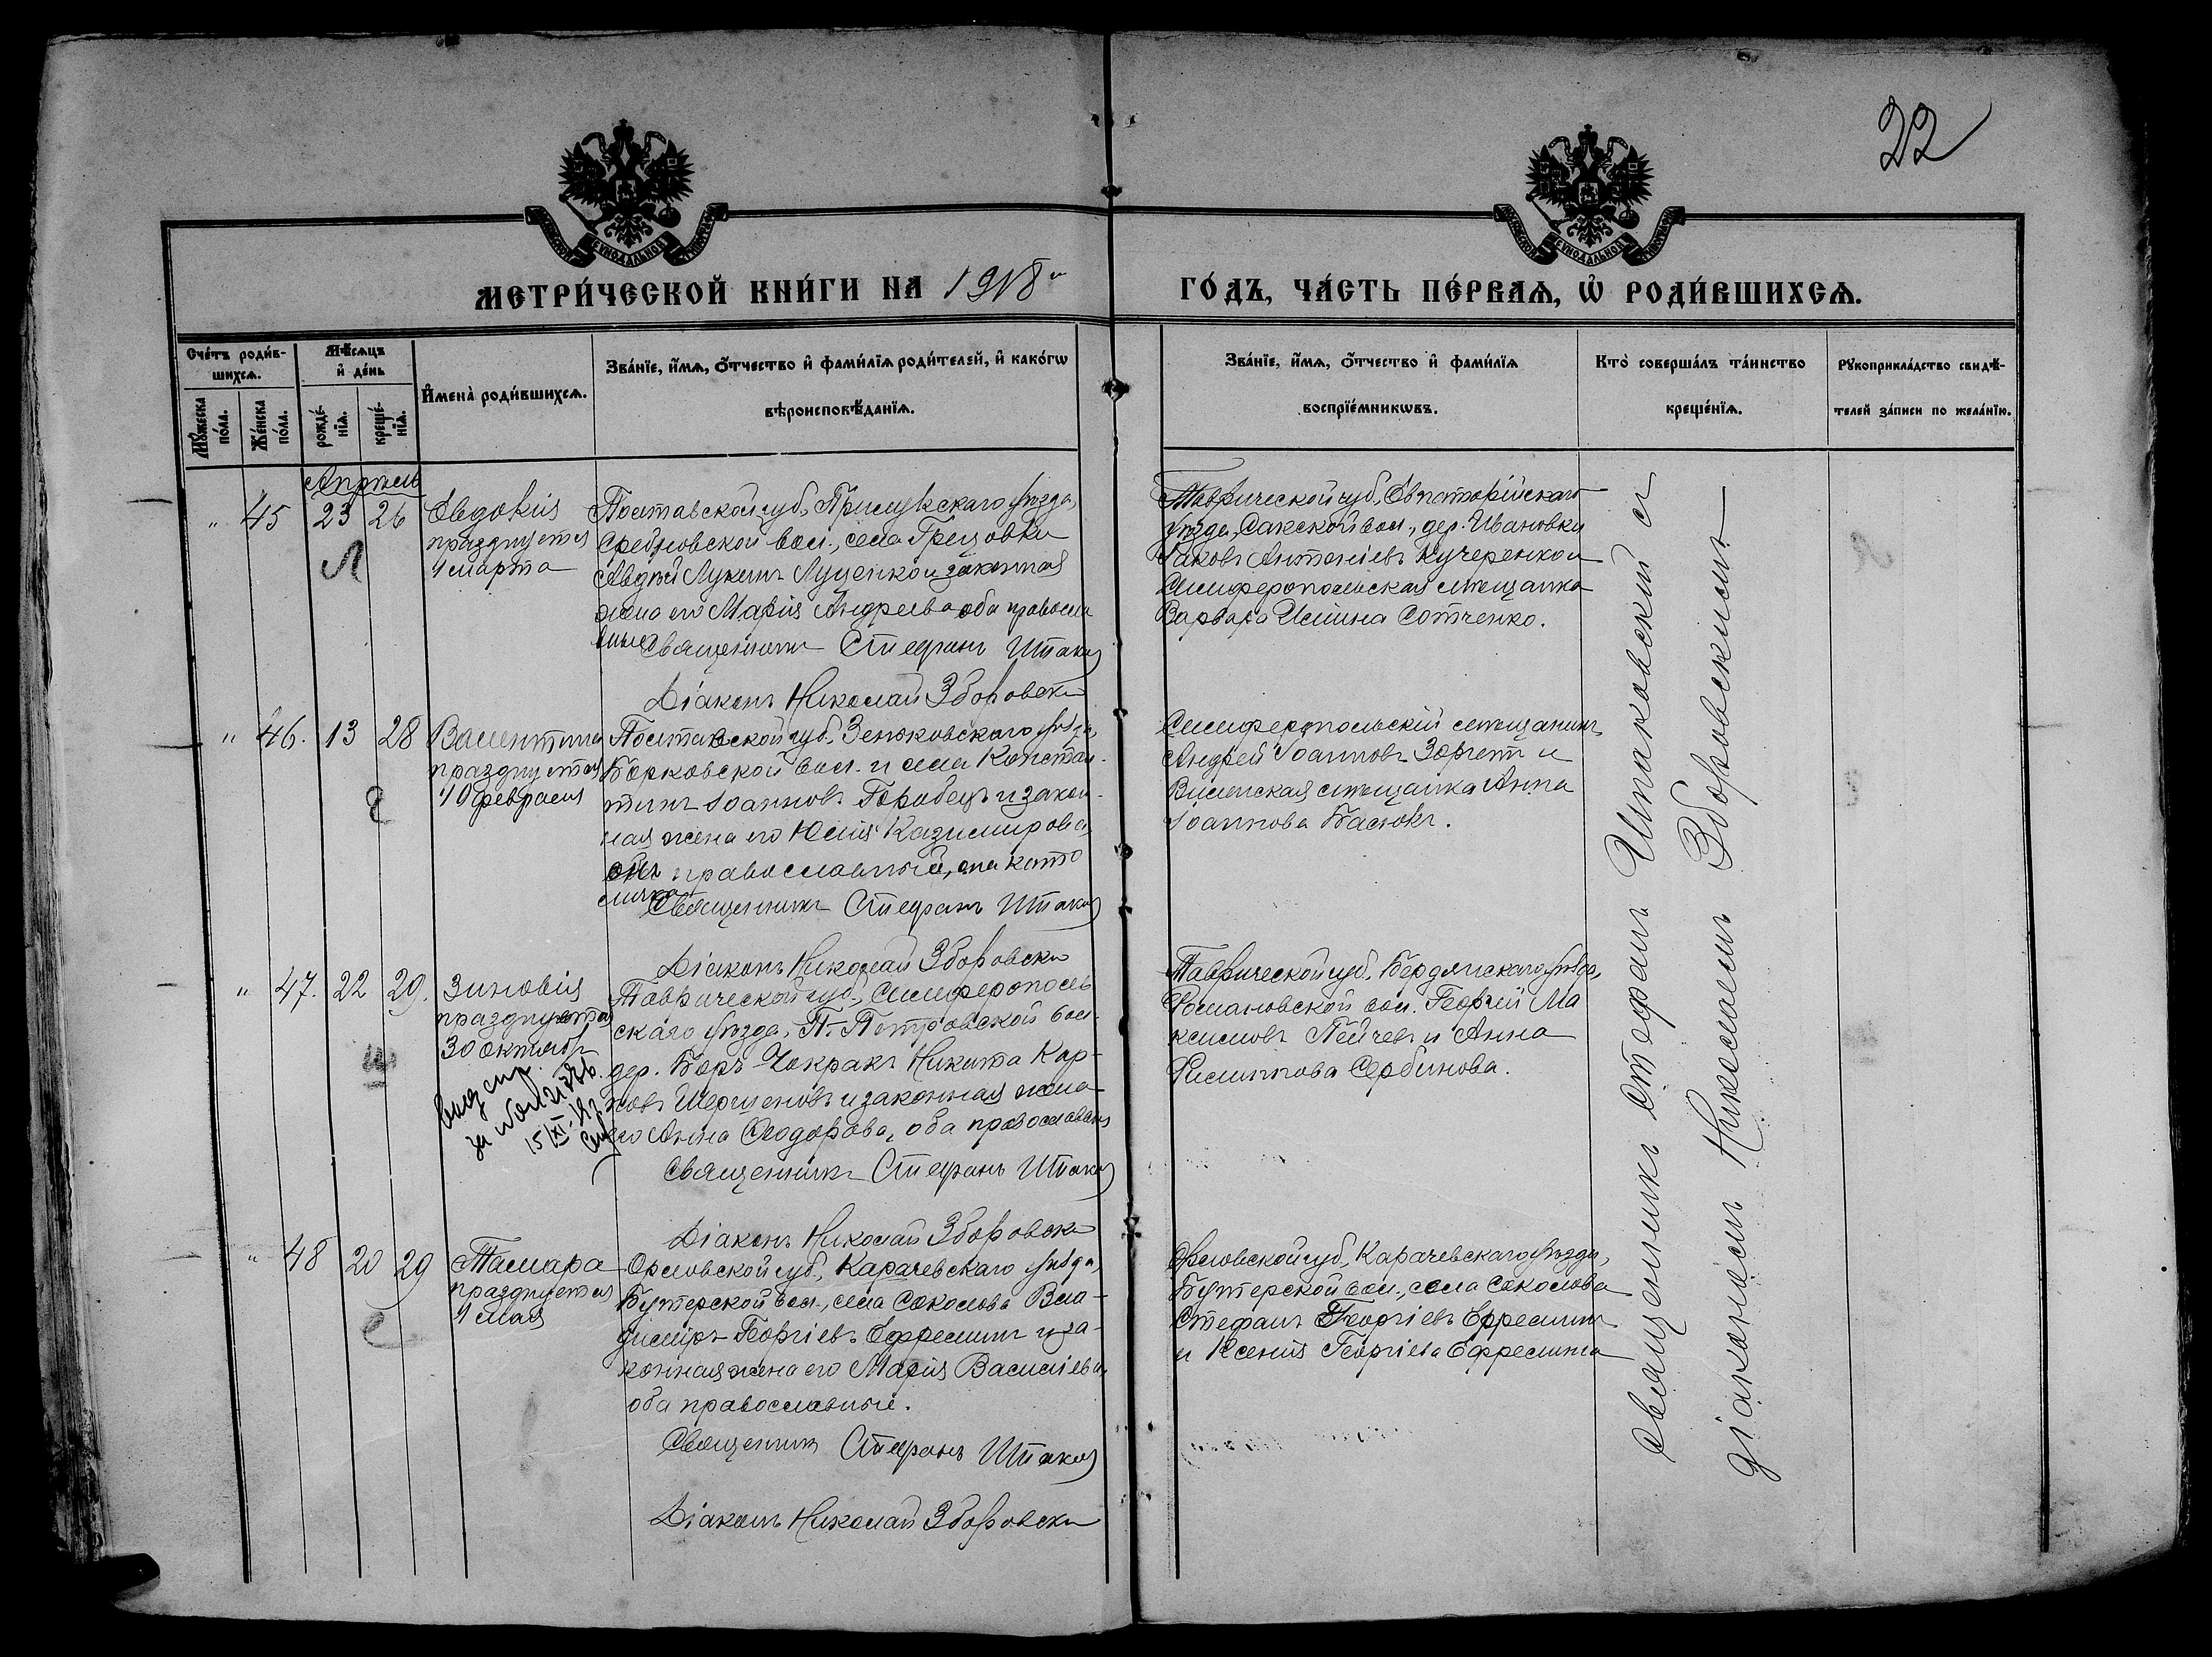 22
МЕТРИ́ЧЕСКОЙ КНИ́ГИ НА 1918 ГО́ДЪ, ЧА́СТЬ ПЕ́РВАЯ, Ѽ РОДИ́ВШИХСЯ.
Сче́тъ роди́в-
шихся.
Мѣ́сяцъ
и҆ де́нь
Мꙋ́жеска
по́ла.
Же́нска
по́ла.
рожде́-
нїя.
креще́-
нїя.
И҆мена̀ роди́вшихся.
Зва́нїе, и҆́мя, ѻ҆́тчество и҆ фами́лїя роди́телей, и҆ како́гѡ
вѣроисповѣ́данїя.
Зва́нїе, и҆́мя, ѻ҆́тчество и҆ фами́лїя
воспрїе́мникѡвъ.
Кто̀ соверша́лъ та́инство
креще́нїя.
Рꙋкоприкла́дство свидѣ́-
телей за́писи по жела́нїю.
Апрѣль
" 45 23 26
Евдокія
празднуется
1 марта
Полтавской губ., Прилукскаго уѣзда,
Сребновской вол., села Грицовки
Авдѣй Лукинъ Луценко и законная
жена его Марія Андреева оба правосла
вные
Священникъ Стефанъ Шпаков
Діаконъ Николай Зборовски
Таврической губ., Евпаторійскаго
уѣзда, Сакской вол., дер. Ивановки
Іаковъ Антоніевъ Кучеренко и
Симферопольская мѣщанка
Варвара Ильина Сотченко.
" 46. 13 28
Валентина
празднуется
10 февраля
Полтавской губ., Зеньковскаго уѣзда,
Борковской вол. и села Констан-
тинъ Іоанновъ Горобецъ и закон-
ная жена его Юлія Казимирова,
онъ православный, она като
личка
Священникъ Стефанъ Шпаков
Діаконъ Николай Зборовски
Симферопольскій мѣщанинъ
Андрей Іоанновъ Зоргетт и
Виленская мѣщанка Анна
Іоаннова Басюкъ.
" 47. 22 29.
Зиновія
празднуется
30 октября
15/XI
Таврической губ., Симферополь
скаго уѣзда, П.-Петровской вол.
дер. Боръ-Чокракъ Никита Кар-
повъ Шершеновъ и законная жена
его Анна Ѳеодорова, оба православн
Священникъ Стефанъ Шпаков
Діаконъ Николай Зборовски
Таврической губ., Бердянскаго уѣзда,
Романовской вол. Георгій Ма
ксимовъ Пейчевъ и Анна
Филиппова Сербинова.
" 48 20 29
Тамара
празднуется
1 мая
Орловской губ., Карачевскаго уѣзда,
Бутерской вол., села Соколова Вла-
димiръ Георгіевъ Ефремин и за-
конная жена его Марія Василіева,
оба православные.
Священникъ Стефанъ Шпаков
Діаконъ Николай Зборовски
Орловской губ., Карачевскаго уѣзда,
Бутерской вол., села Соколова
Стефанъ Георгіевъ Ефремин
и Ксенія Георгіева Ефремина
Священникъ Стефанъ Шпаковскій съ
діакономъ Николаемъ Зборовскимъ